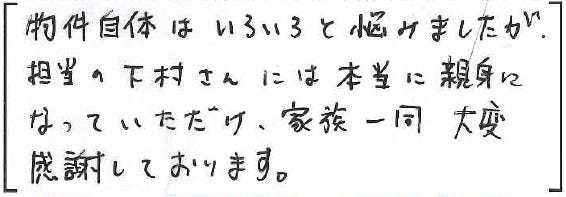 物件自体はいろいろと悩みましたが、
担当の下村さんには本当に親身に
なっていただけ、家族一同 大変
感謝しております。